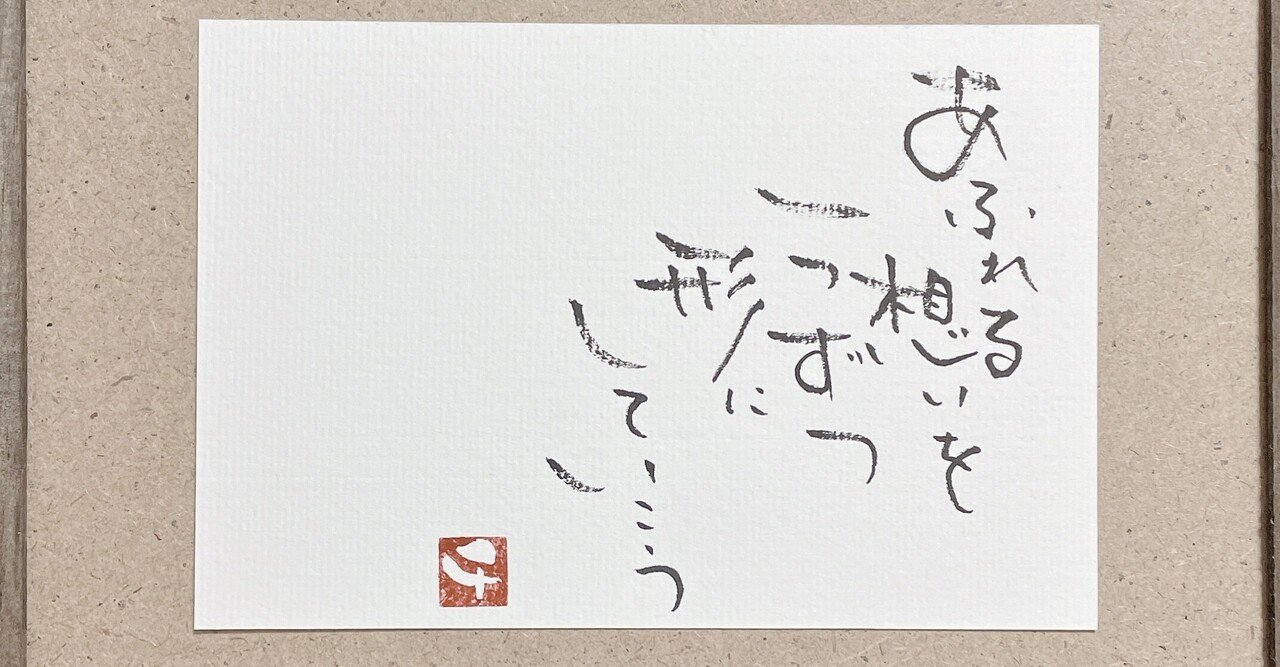 あふれる
想いを
一つずつ
形に
していこう